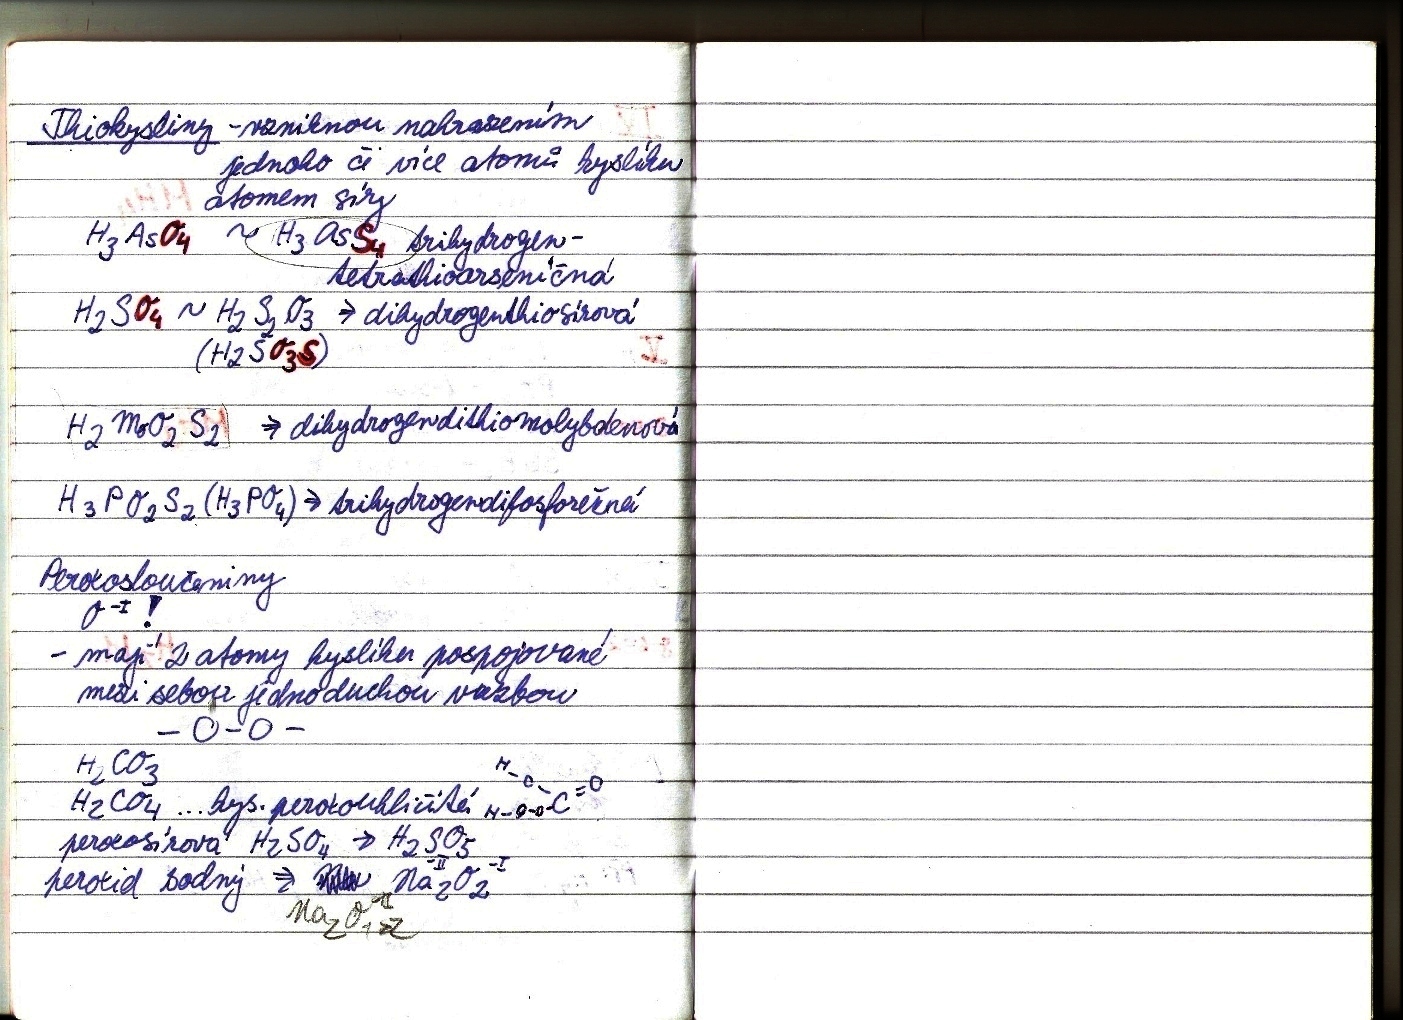 Thiokyseliny - vzniknou nahrazením
jednoho či více atomů kyslíku
atomem síry
H₃AsO₄ ~ H₃AsS₄ trihydrogen-
tetrathioarseničná
H₂SO₄ ~ H₂S₂O₃ → dihydrogenthiosírová
(H₂SO₃S)
H₂MoO₂S₂ ⇒ dihydrogendithiomolybdenová
H₃PO₂S₂ (H₃PO₄) → trihydrogendifosforečná
Peroxosloučeniny
O⁻ᴵ !
- mají 2 atomy kyslíku pospojované
mezi sebou jednoduchou vazbou
- O - O -
H₂CO₃
H₂CO₄ ... kys. peroxouhličitá
H-O
C=O
H-O-O-C
peroxosírová H₂SO₄ → H₂SO₅
peroxid sodný ⇒ Na₂⁻ᴵᴵO₂⁻ᴵ
Na₂O